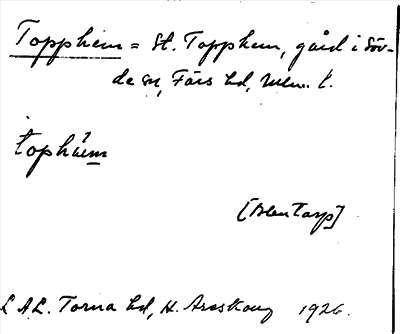 Topphem = St. Topphem, gård i Söv-
de sn, Färs hd, Mlm. l.
tophä́m
[Blentarp]
L A L. Torna hd, H. Areskoug 1926.